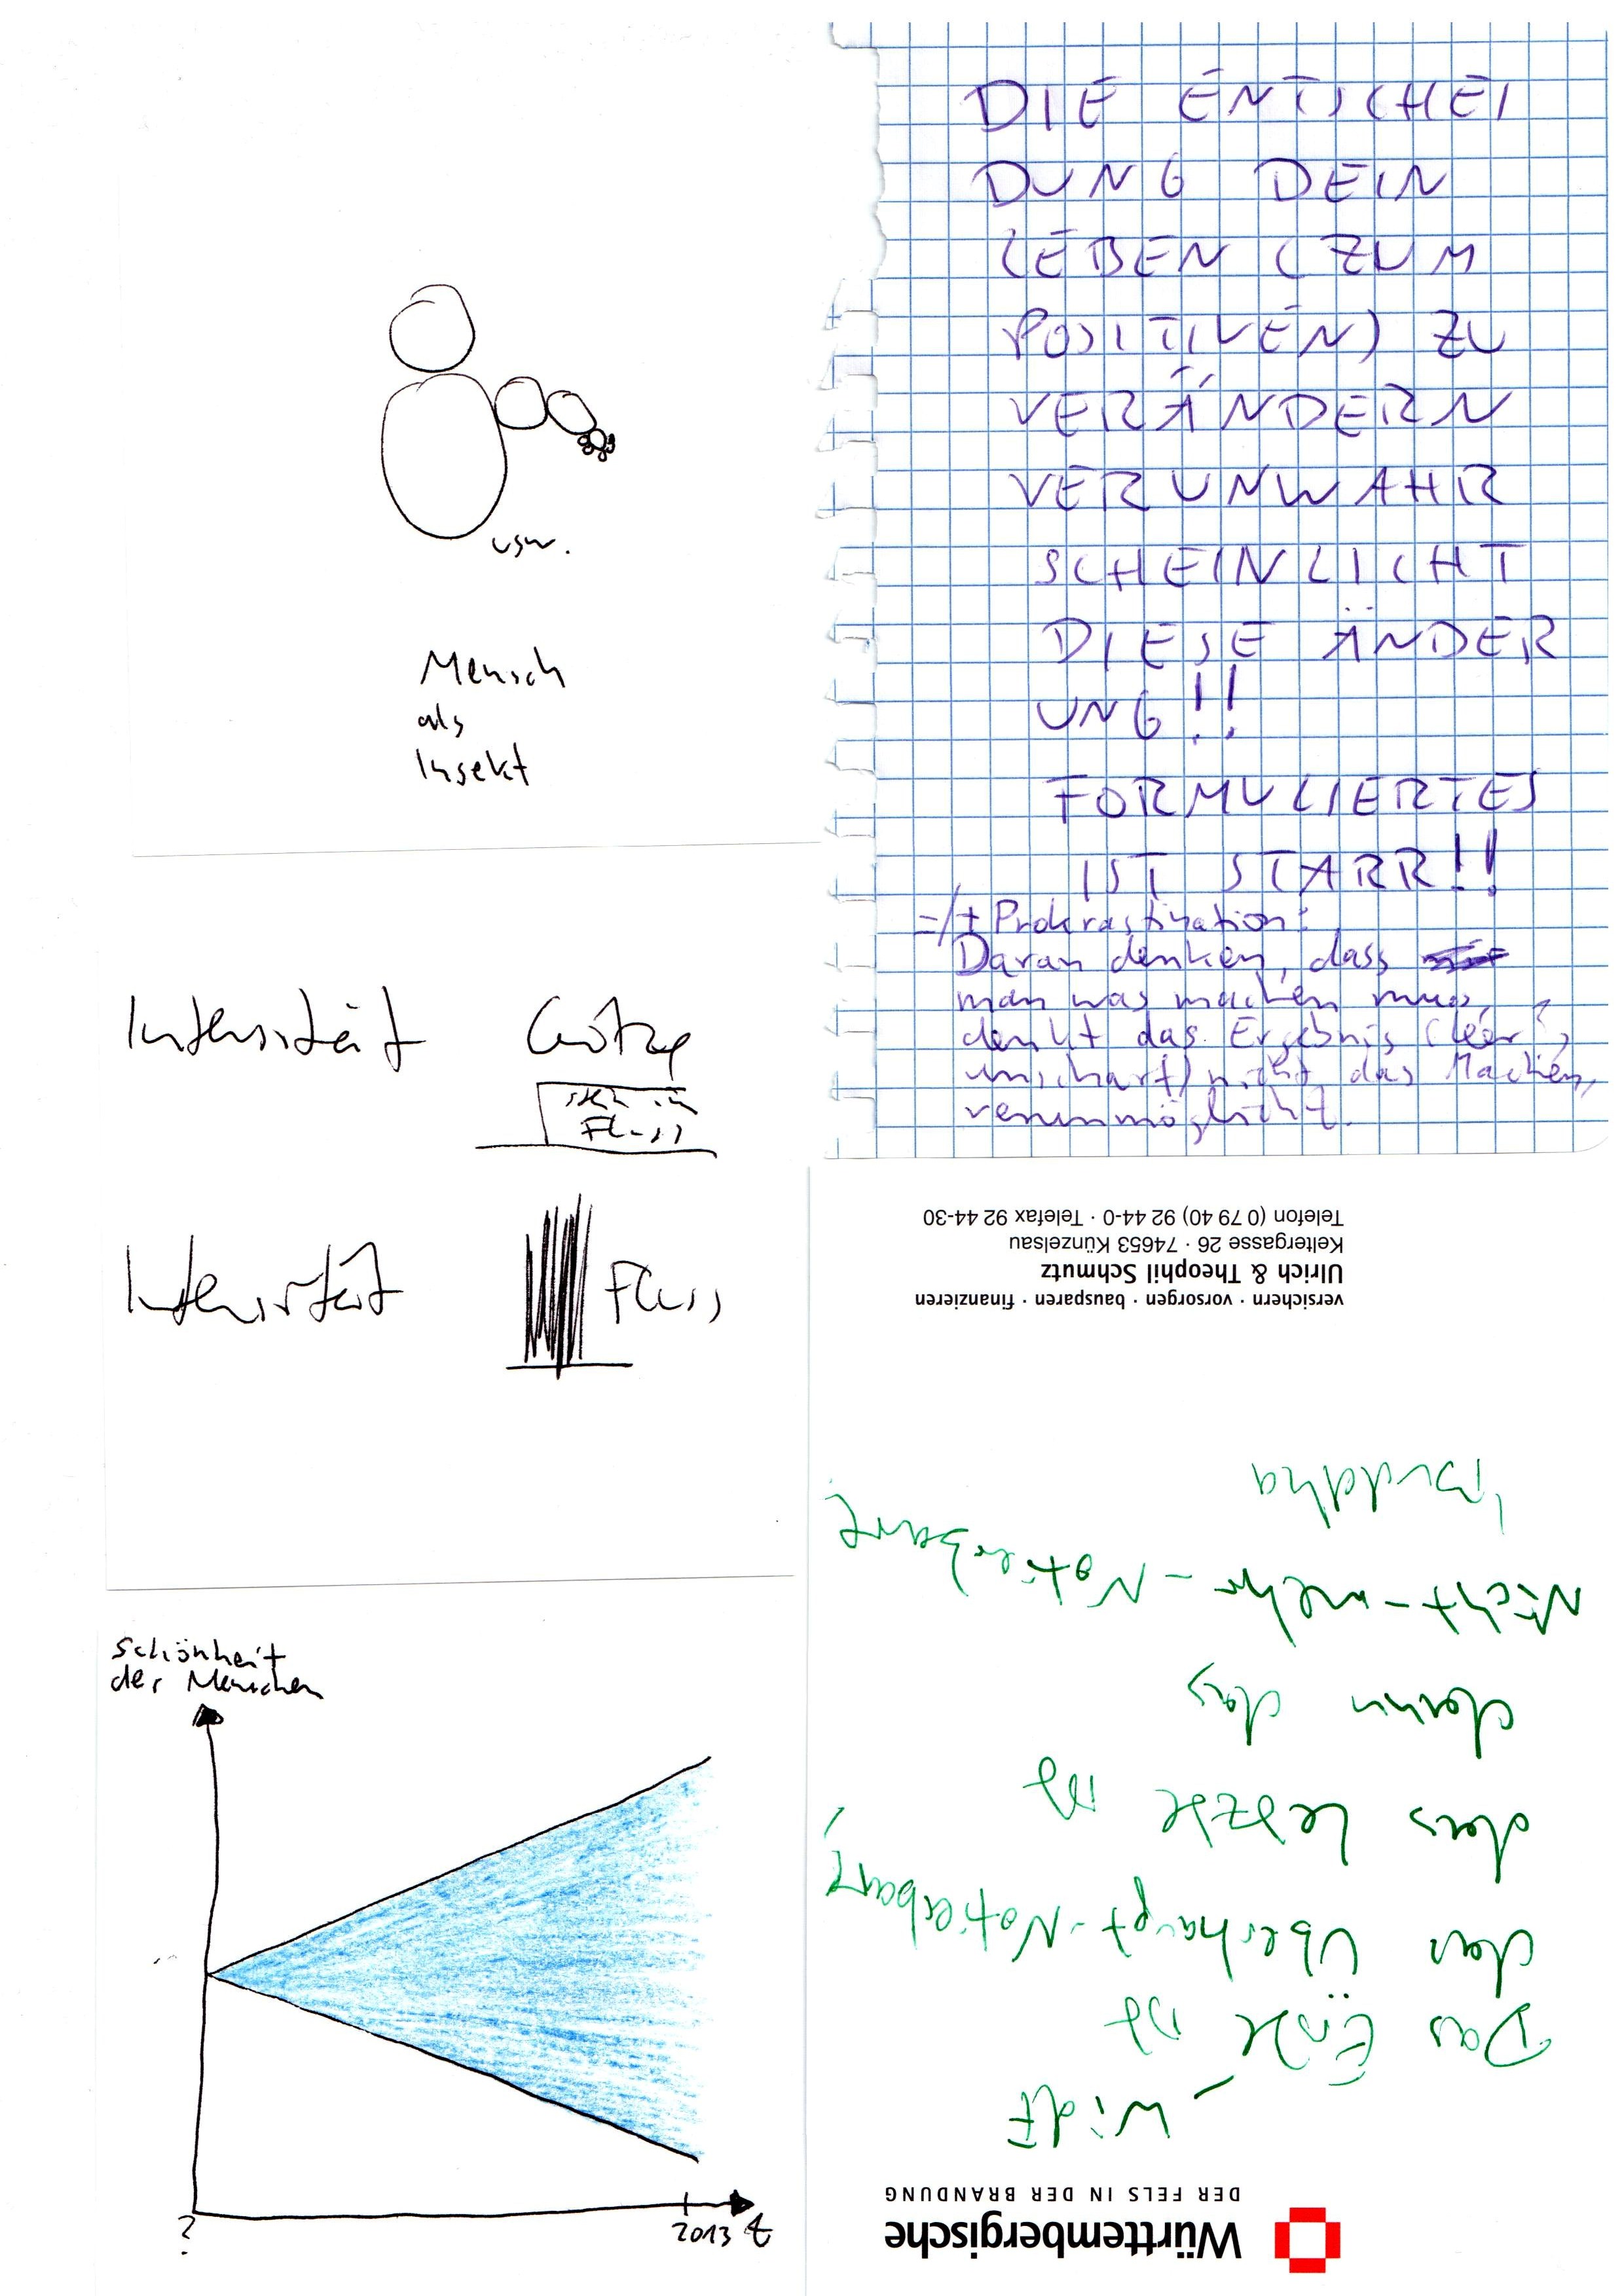 usw.
Mensch
als
Insekt
Intensität
Fluss
Intensität
Fluss
Schönheit
der Menschen
?
2013 t
DIE ENTSCHEI
DUNG DEIN
LEBEN (ZUM
POSITIVEN) ZU
VERÄNDERN
VERUNWAHR
SCHEINLICHT
DIESE ÄNDER
UNG!!
FORMULIERTES
IST STARR!!
=/+ Prokrastination:
Daran denken, dass
man was machen muss,
denkt das Ergebnis (leer?,
unscharf) nicht das Machen,
verunmöglicht.
Württembergische
DER FELS IN DER BRANDUNG
Das Ende ist
das Überhaupt-Notierbare,
das Letzte ist
dann das
Nicht-mehr-Notierbare
Buddha
versichern · vorsorgen · bausparen · finanzieren
Ulrich & Theophil Schmutz
Keltergasse 26 · 74653 Künzelsau
Telefon (0 79 40) 92 44-0 · Telefax 92 44-30